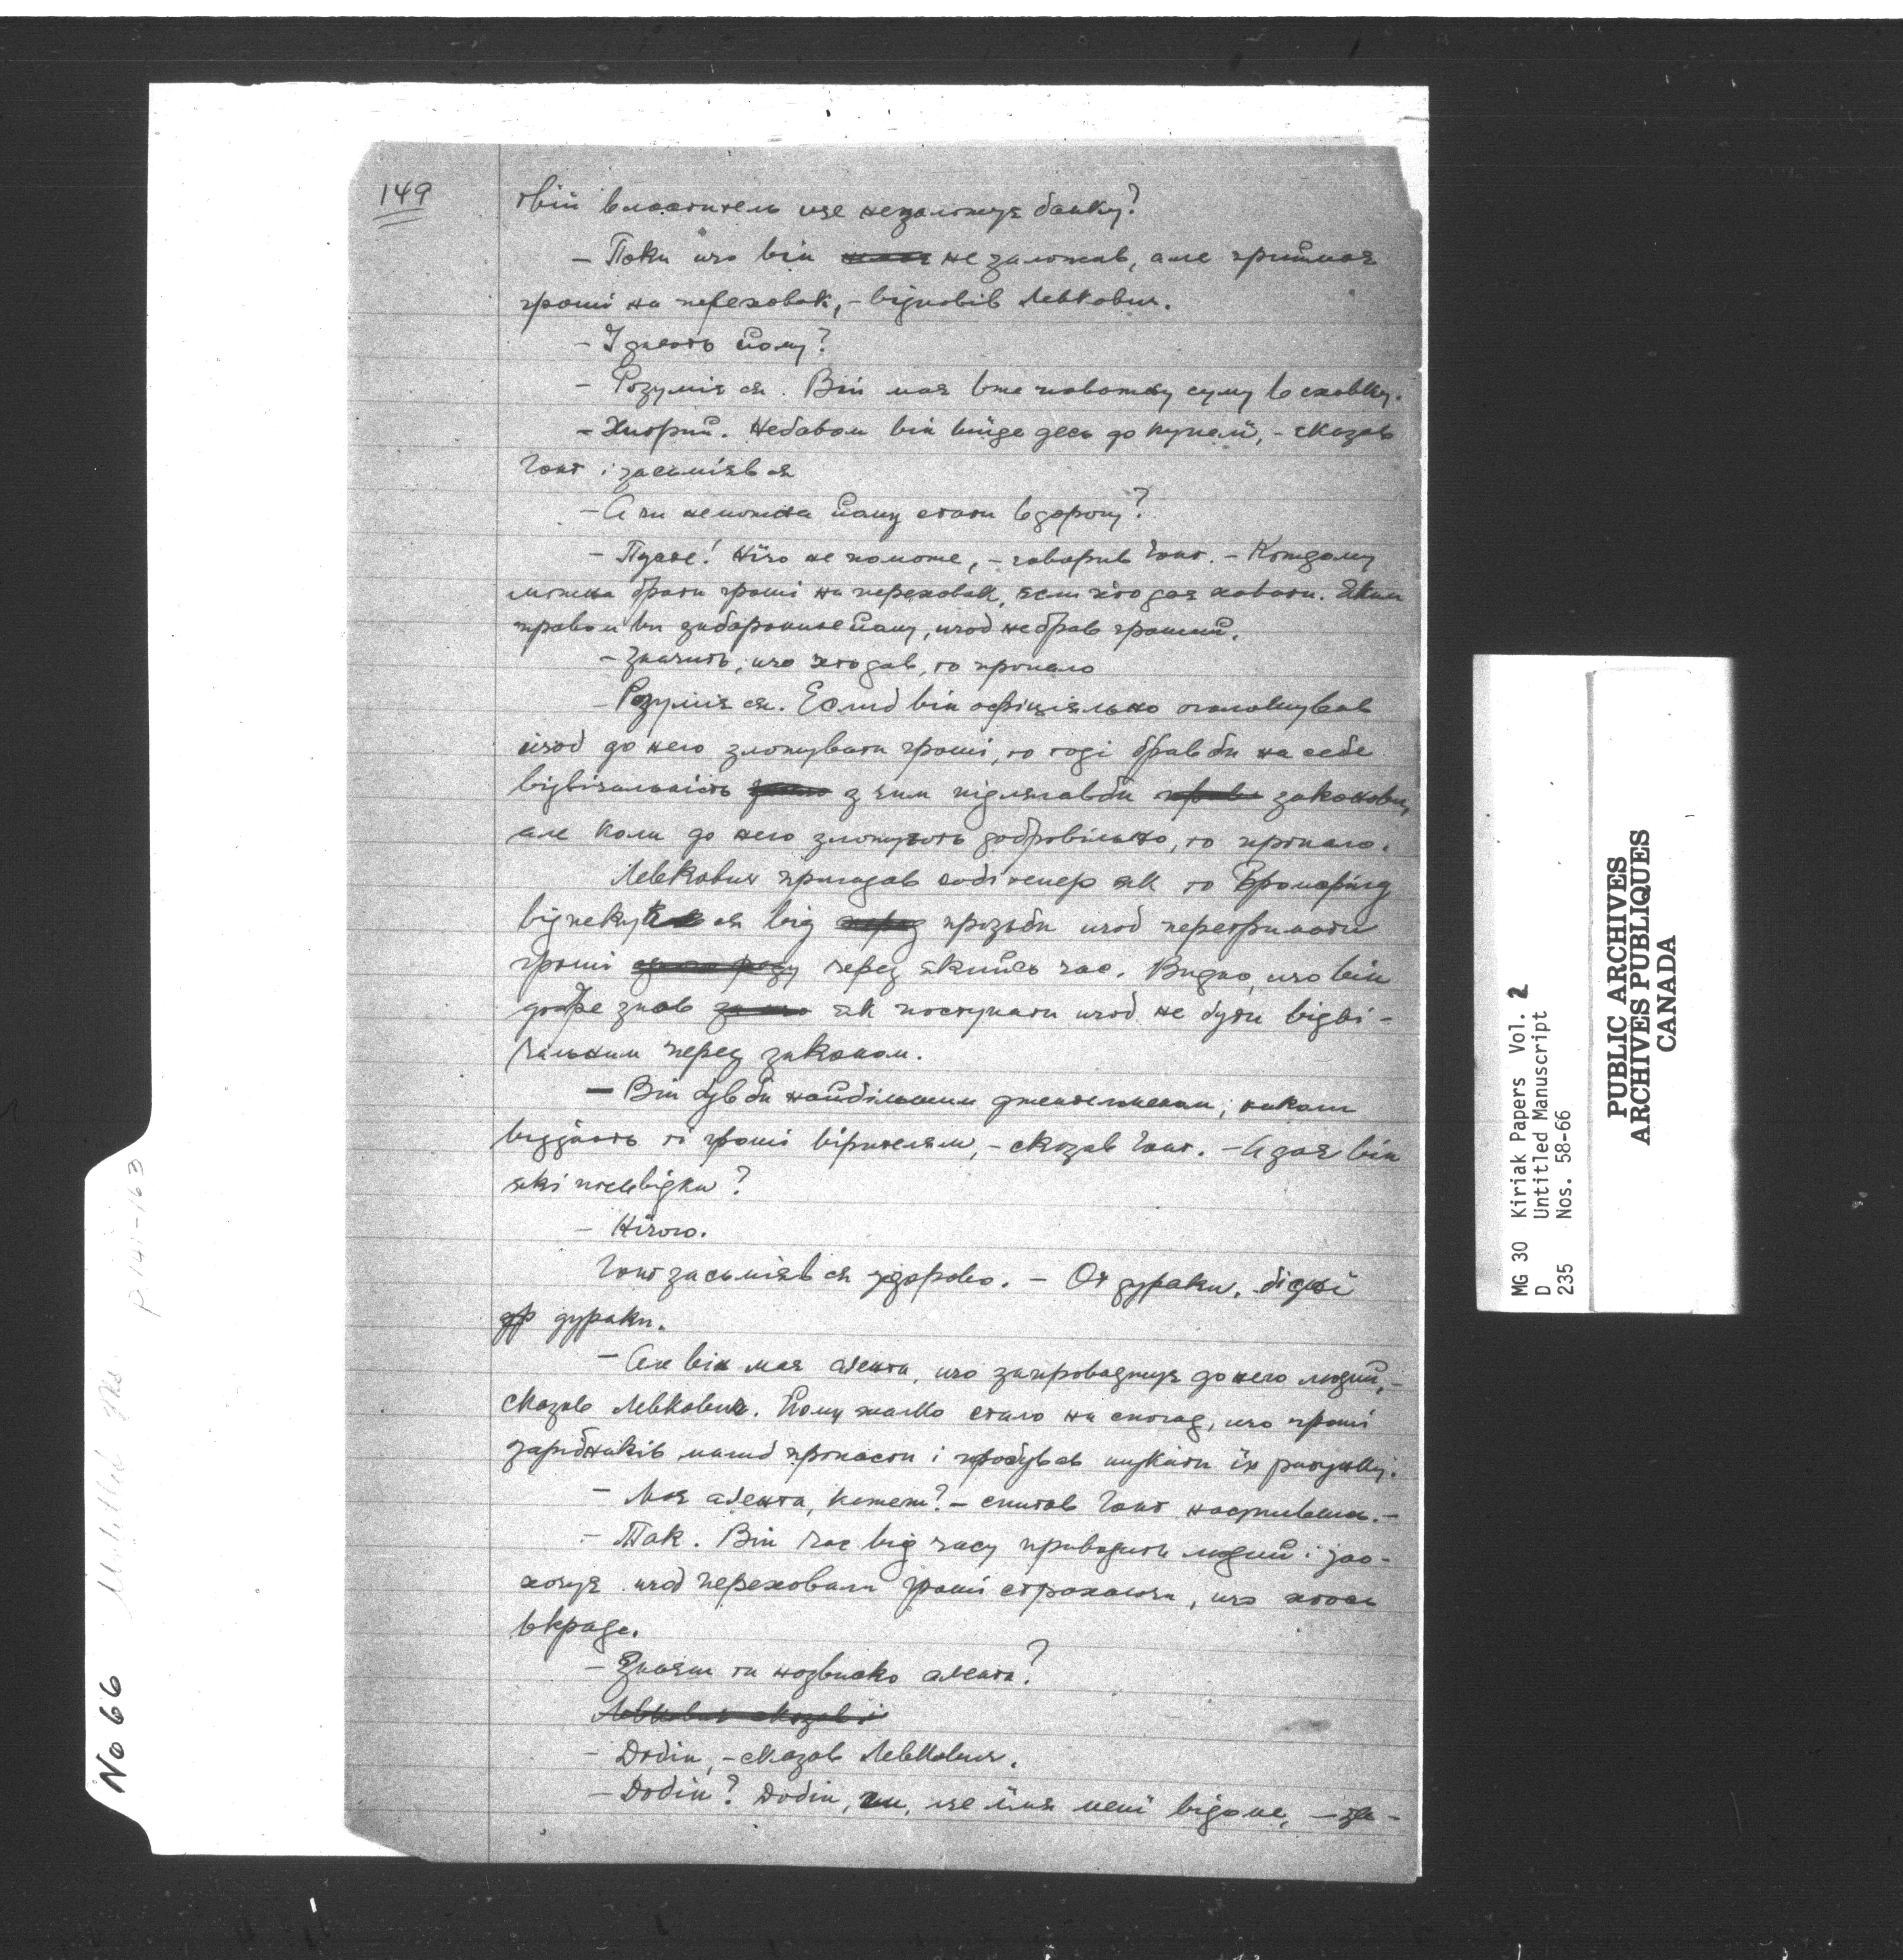 149
твій властитель ще незаложує банку?
– Поки що він не заложив, але приймає
гроші на переховок, – відповів Левкович.
– І дають йому?
– Розуміє ся. Він має вже поважну суму в сховку.
– Хитрий. Небавом він виїде десь до купелий, – сказав
Гонт і засьміяв ся
– А чи неможна йому стати в дорогу?
– Пусте! Нічо не поможе, – говорив Гонт. – Кождому
можна брати гроші на переховок, если хто дає ховати. Яким
правом ви заборонилеб йому, щоб не брав грошей.
– Значить, що хто дав, то пропало
– Розуміє ся. Еслиб він офіціяльно оголошував
щоб до него зложувати гроші, то тоді брав би на себе
відвічальність з чим підлягав би законови,
але коли до него зложують добровільно, то пропало.
Левкович пригадав собі тепер як то Бромфілд
відпекував ся від прозьби щоб перетримати
гроші через якийсь час. Видно, що він
добре знав як поступати щоб не бути відві-
чальним перед законом.
– Він був би найбільшим джентелменом, наколи
віддасть ті гроші вірителям, – сказав Гонт. – А дає він
які посьвідки?
– Нічого.
Гонт засьміяв ся здорово. – От дураки, бідні
др дураки.
– Але він має аґента, що запроваджує до него людий, –
сказав Левкович. Йому жалко стало на спогад, що гроші
зарібників малиб пропасти і пробував шукати їх ратунку.
– Має аґента, кажеш? – спитав Гонт насупившись. –
– Так. Він час від часу приводить людий і зао-
хочує щоб переховали гроші страхаючи, що хтось
вкраде.
– Знаєш ти назвиско аґента?
Левкович сказав і
– Добін, – сказав Левкович.
– Добін? Добін, гм, це імя мені відоме, – за-
No 66
P 141-163
MG 30 Kiriak Papers Vol. 2
D Untitled Manuscript
235 Nos. 58-66
PUBLIC ARCHIVES
ARCHIVES PUBLIQUES
CANADA